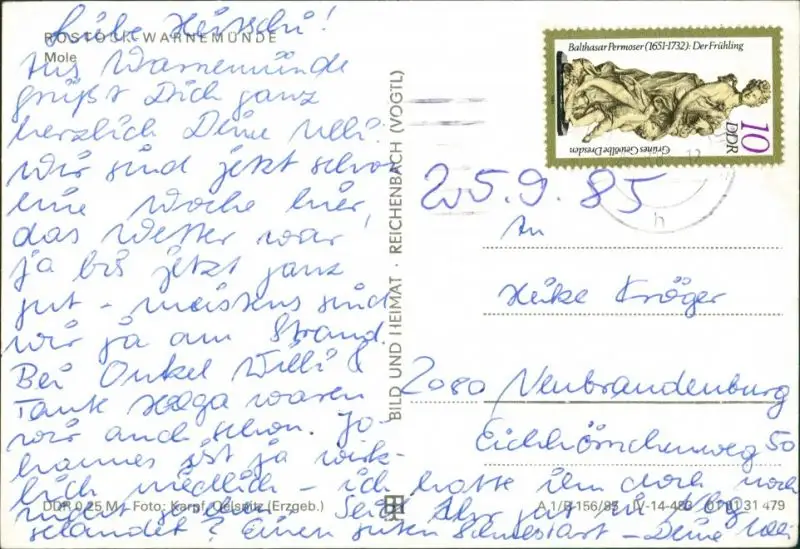 Liebe Heiseline!
ROSTOCK-WARNEMÜNDE
Mole
Aus Warnemünde
grüßt Dich ganz
herzlich Deine Ulli.
Wir sind jetzt schon
eine Woche hier,
das Wetter war
ja bis jetzt ganz
gut - meistens sind
wir ja am Strand.
Bei Onkel Willi &
Tante Helga waren
wir auch schon. Jo-
hannes ist ja wirk-
lich niedlich - ich hatte ihn doch noch
nicht gesehen. Seid Ihr gut in
gelandet? Einen guten Semesterstart - Deine Ulli
DDR 0,25 M - Foto: Karpf, Oelsnitz (Erzgeb.)
BILD UND HEIMAT · REICHENBACH (VOGTL)
A 1/B 156/85 IV-14-483 01 10 31 479
Balthasar Permoser (1651-1732): Der Frühling
Grünes Gewölbe Dresden
10
DDR
25.9.85
An
Heike Kröger
2080 Neubrandenburg
Eichhörnchenweg 50